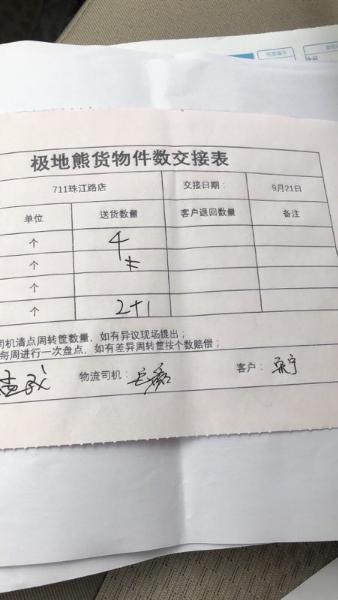 极地熊货物件数交接表
711珠江路店 交接日期： 9月21日
单位 送货数量 客户退回数量 备注
个 4
个
个
个 2+1
司机清点周转筐数量，如有异议现场提出；
每周进行一次盘点，如有差异周转筐按个数赔偿；
物流司机： 客户：